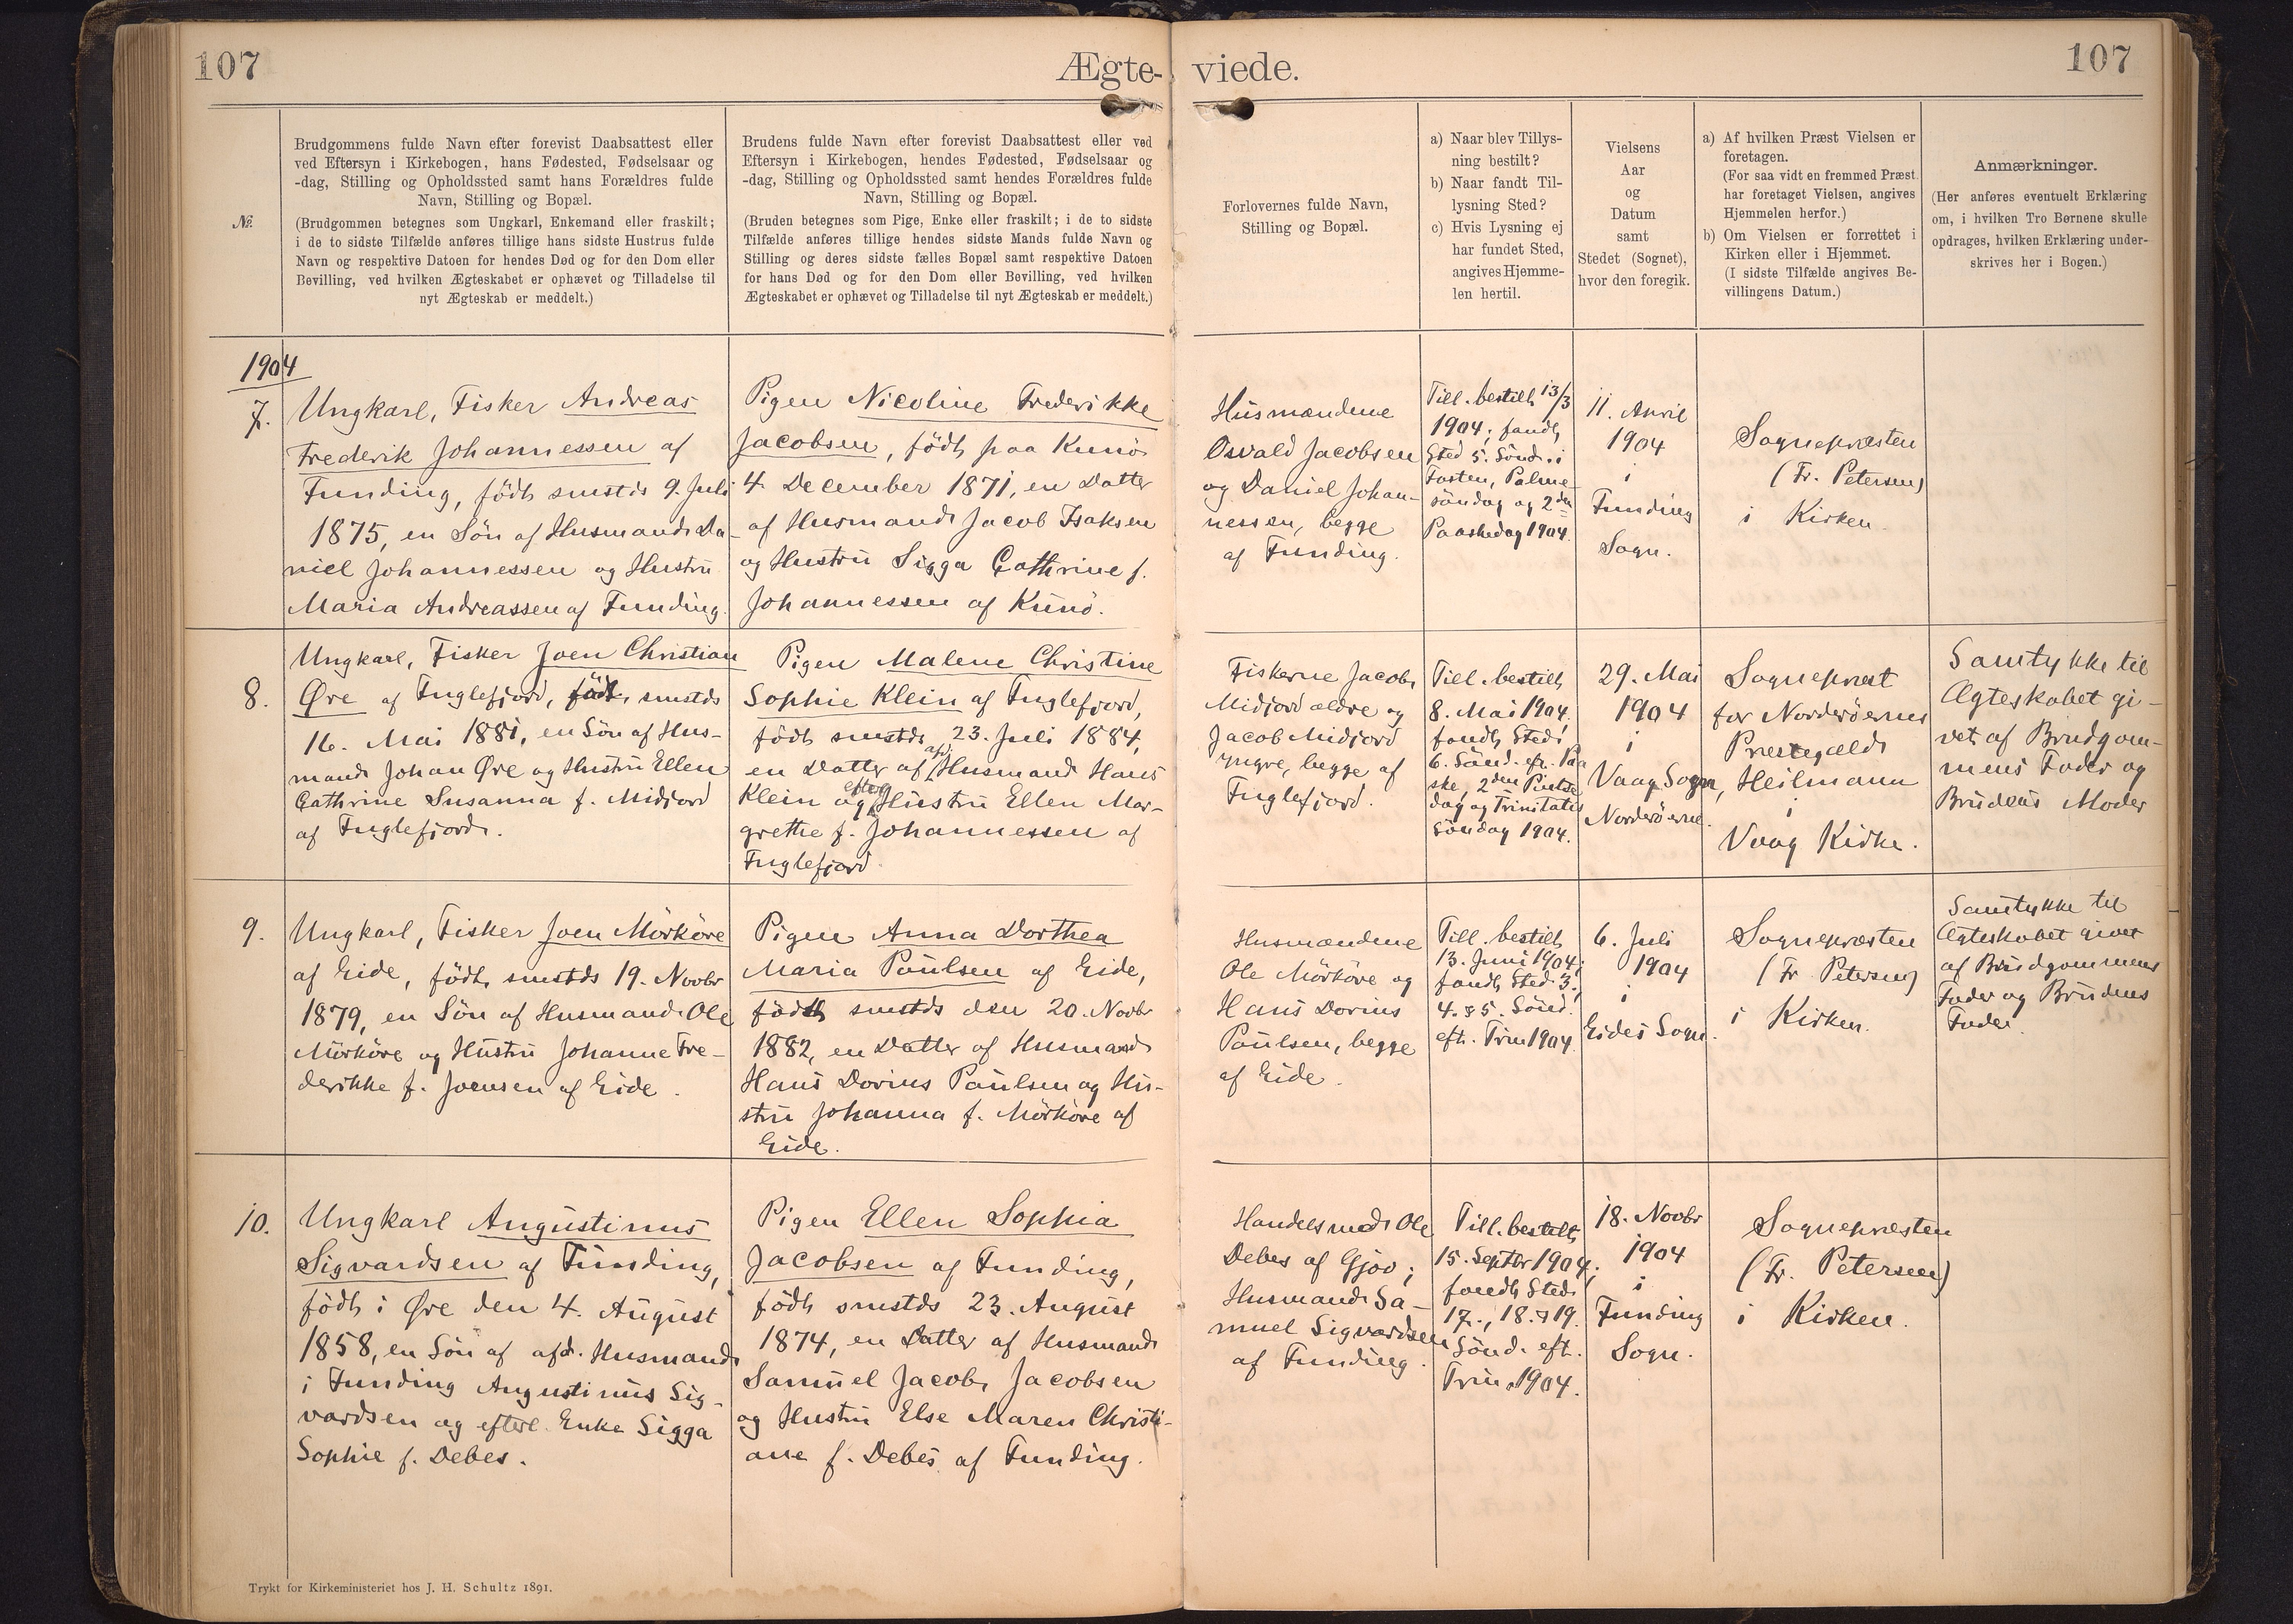 107
Ægte-
viede.
107
№.
Brudgommens fulde Navn efter forevist Daabsattest eller
ved Eftersyn i Kirkebogen, hans Fødested, Fødselsaar og
-dag, Stilling og Opholdssted samt hans Forældres fulde
Navn, Stilling og Bopæl.
(Brudgommen betegnes som Ungkarl, Enkemand eller fraskilt;
i de to sidste Tilfælde anføres tillige hans sidste Hustrus fulde
Navn og respektive Datoen for hendes Død og for den Dom eller
Bevilling, ved hvilken Ægteskabet er ophævet og Tilladelse til
nyt Ægteskab er meddelt.)
Brudens fulde Navn efter forevist Daabsattest eller ved
Eftersyn i Kirkebogen, hendes Fødested, Fødselsaar og
-dag, Stilling og Opholdssted samt hendes Forældres fulde
Navn, Stilling og Bopæl.
(Bruden betegnes som Pige, Enke eller fraskilt; i de to sidste
Tilfælde anføres tillige hendes sidste Mands fulde Navn og
Stilling og deres sidste fælles Bopæl samt respektive Datoen
for hans Død og for den Dom eller Bevilling, ved hvilken
Ægteskabet er ophævet og Tilladelse til nyt Ægteskab er meddelt.)
Forlovernes fulde Navn,
Stilling og Bopæl.
a) Naar blev Tillys-
ning bestilt?
b) Naar fandt Til-
lysning Sted?
c) Hvis Lysning ej
har fundet Sted,
angives Hjemme-
len hertil.
Vielsens
Aar
og
Datum
samt
Stedet (Sognet),
hvor den foregik.
a) Af hvilken Præst Vielsen er
foretagen.
(For saa vidt en fremmed Præst
har foretaget Vielsen, angives
Hjemmelen herfor.)
b) Om Vielsen er forrettet i
Kirken eller i Hjemmet.
(I sidste Tilfælde angives Be-
villingens Datum.)
Anmærkninger.
(Her anføres eventuelt Erklæring
om, i hvilken Tro Børnene skulle
opdrages, hvilken Erklæring under-
skrives her i Bogen.)
1904
7.
Ungkarl, Fisker Andreas
Frederik Johannessen af
Funding, födt smstds 9. Juli
1875, en Sön af Husmand Da-
niel Johannessen og Hustru
Maria Andreassen af Funding.
Pigen Nicoline Frederikke
Jacobsen, födt paa Kunö
4. December 1871, en Datter
af Husmand Jacob Isaksen
og Hustru Sigga Cathrine f.
Johannessen af Kunö.
Husmændene
Osvald Jacobsen
og Daniel Johan-
nessen, begge
af Funding.
Till. bestilt 13/3
1904; fandt
Sted 5. Sönd. i
Fasten, Palme-
söndag og 2den
Paaskedag 1904.
11. April
1904
i
Funding
Sogn.
Sognepræsten
(Fr. Petersen)
i Kirken
8.
Ungkarl, Fisker Joen Christian
Øre af Fuglefjord, födt smstds
16. Mai 1881, en Sön af Hus-
mand Johan Øre og Hustru Ellen
Cathrine Susanna f. Midjord
af Fuglefjord.
Pigen Malene Christine
Sophie Klein af Fuglefjord,
födt smstds 23. Juli 1884,
en Datter af afd. Husmand Hans
Klein og efterl. Hustru Ellen Mar-
grethe f. Johannessen af
Fuglefjord.
Fiskerne Jacob
Midjord ældre og
Jacob Midjord
yngre, begge af
Fuglefjord.
Till. bestilt
8. Mai 1904,
fandt Sted
6. Sönd. eft. Paa
ske, 2den Pintse
dag og Trinitatis
Söndag 1904.
29. Mai
1904
i
Vaag Sogn,
Norderöerne.
Sognepræst
for Norderöernes
Præstegæld
Heilmann
i
Vaag Kirke.
Samtykke til
Ægteskabet gi-
vet af Brudgom-
mens Fader og
Brudens Moder
9.
Ungkarl, Fisker Joen Mörköre
af Eide, födt smstds 19. Novbr
1879, en Sön af Husmand Ole
Mörköre og Hustru Johanne Fre-
derikke f. Joensen af Eide.
Pigen Anna Dorthea
Maria Paulsen af Eide,
födt smstds den 20. Novbr
1882, en Datter af Husmand
Hans Dorius Paulsen og Hu-
stru Johanna f. Mörköre af
Eide.
Husmændene
Ole Mörköre og
Hans Dorius
Paulsen, begge
af Eide.
Till. bestilt
13. Juni 1904;
fandt Sted 3.,
4. & 5. Sönd.
eft. Trin 1904.
6. Juli
1904
i
Eides Sogn.
Sognepræsten
(Fr. Petersen)
i Kirken.
Samtykke til
Ægteskabet givet
af Brudgommens
Fader og Brudens
Fader.
10.
Ungkarl Augustinus
Sigvardsen af Funding,
födt i Øre den 4. August
1858, en Sön af afd. Husmand
i Funding Augustinus Sig-
vardsen og efterl. Enke Sigga
Sophie f. Debes.
Pigen Ellen Sophia
Jacobsen af Funding,
födt smstds 23. August
1874, en Datter af Husmand
Samuel Jacob Jacobsen
og Hustru Else Maren Christi-
ane f. Debes af Funding.
Handelsmd Ole
Debes af Gjov;
Husmand Sa-
muel Sigvardsen
af Funding.
Till. bestilt
15. Septbr 1904;
fandt Sted
17., 18. & 19.
Sönd. eft.
Trin. 1904.
18. Novbr
1904
i
Funding
Sogn.
Sognepræsten
(Fr. Petersen)
i Kirken.
Trykt for Kirkeministeriet hos J. H. Schultz 1891.